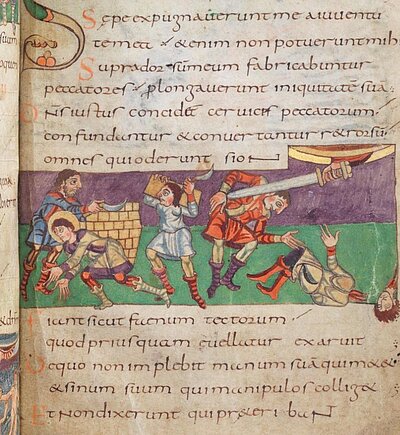 Sepe expugnaverunt me aiuventu
te mea · & enim non potuerunt mih
Supra dorsūmeum fabricabuntur
peccatores · plongaverunt iniquitatē suā
Dns iustus concidet cervices peccatorum
confundantur & convertantur r&rorsū
omnes qui oderunt sion
Fiant sicut faenum tectorum
quod priusquam evellatur exaruit
Dequo non implebit manum suā qui m&&
& sinum suum qui manipulos collig&
Et non dixerunt qui pr&eriban